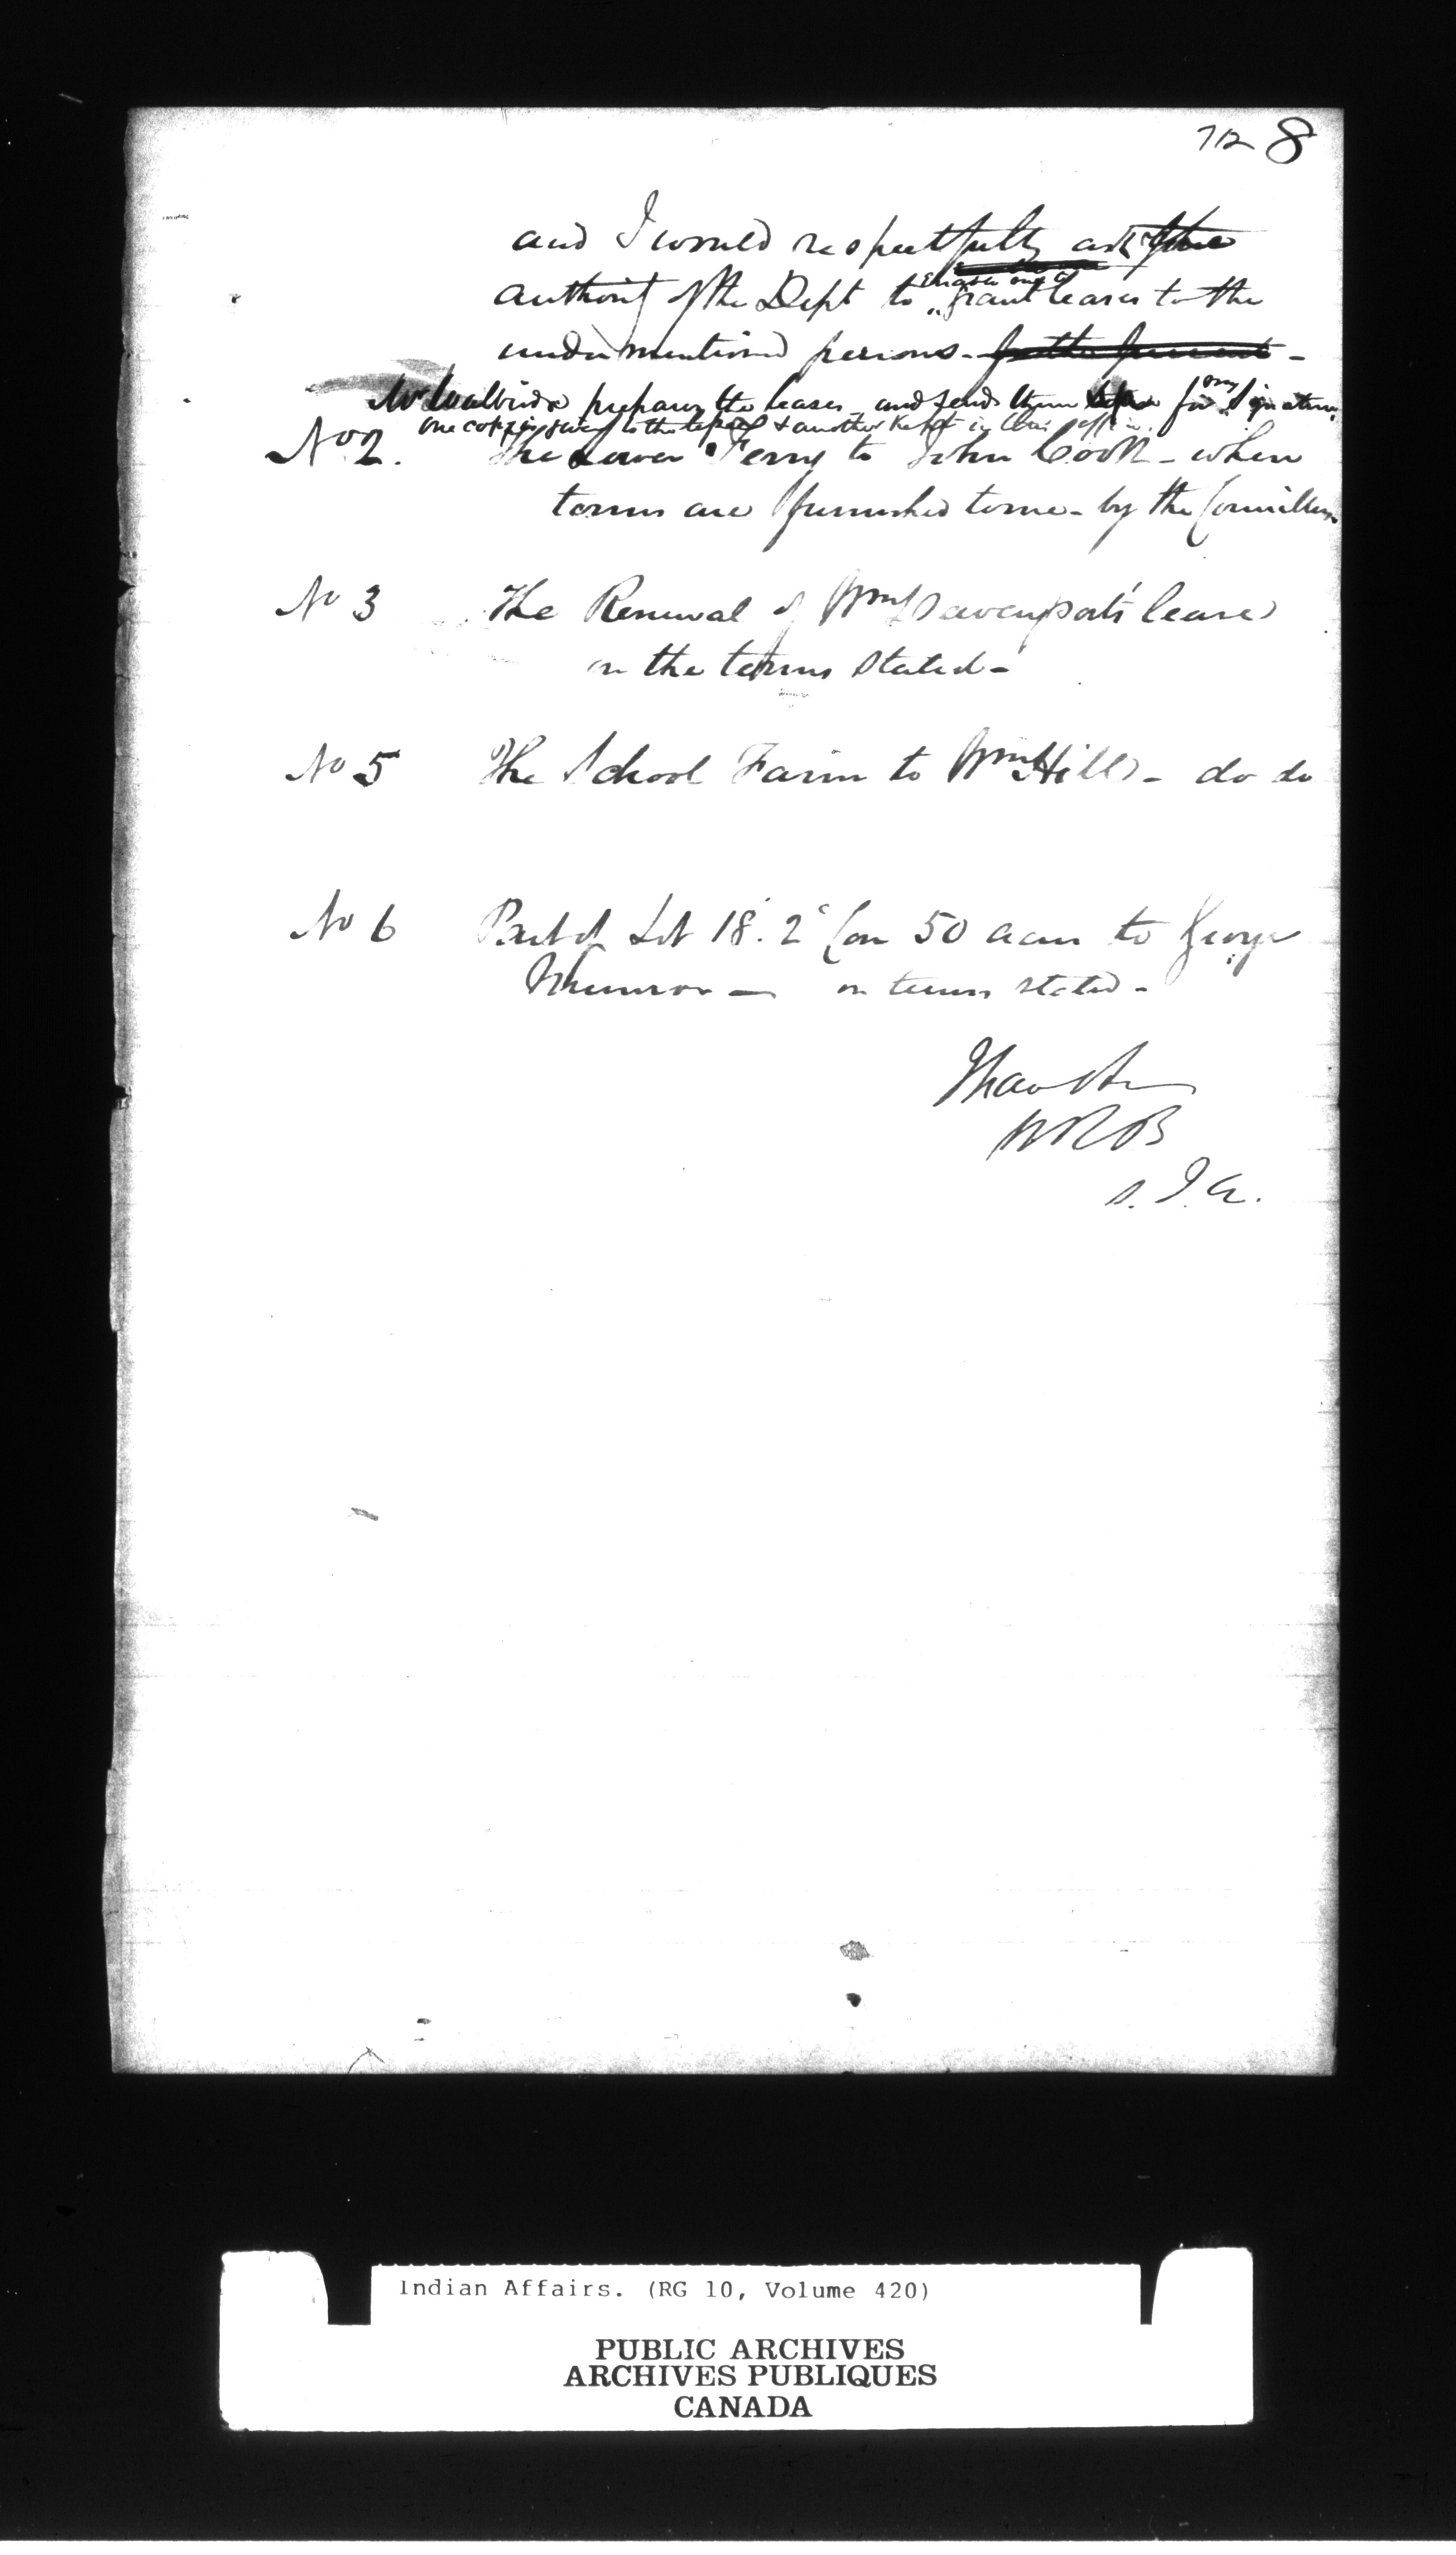 712 8
and I would respectfully ask the
authority of the Dept to grant leases to the
undermentioned persons -
prepares the leases and sends them for my signature
one copy is given to the & another kept in
No 2. The Lower Ferry to John Cook - when
terms are furnished to me - by the Councillors
No 3 The Renewal of Wm Davenport's lease
on the terms stated -
No 5 The School Farm to Wm Hill - do do
No 6 Part of Lot 18. 2d Con 50 acres to George
on terms stated -
WRB
S. I. A.
Indian Affairs. (RG 10, Volume 420)
PUBLIC ARCHIVES
ARCHIVES PUBLIQUES
CANADA